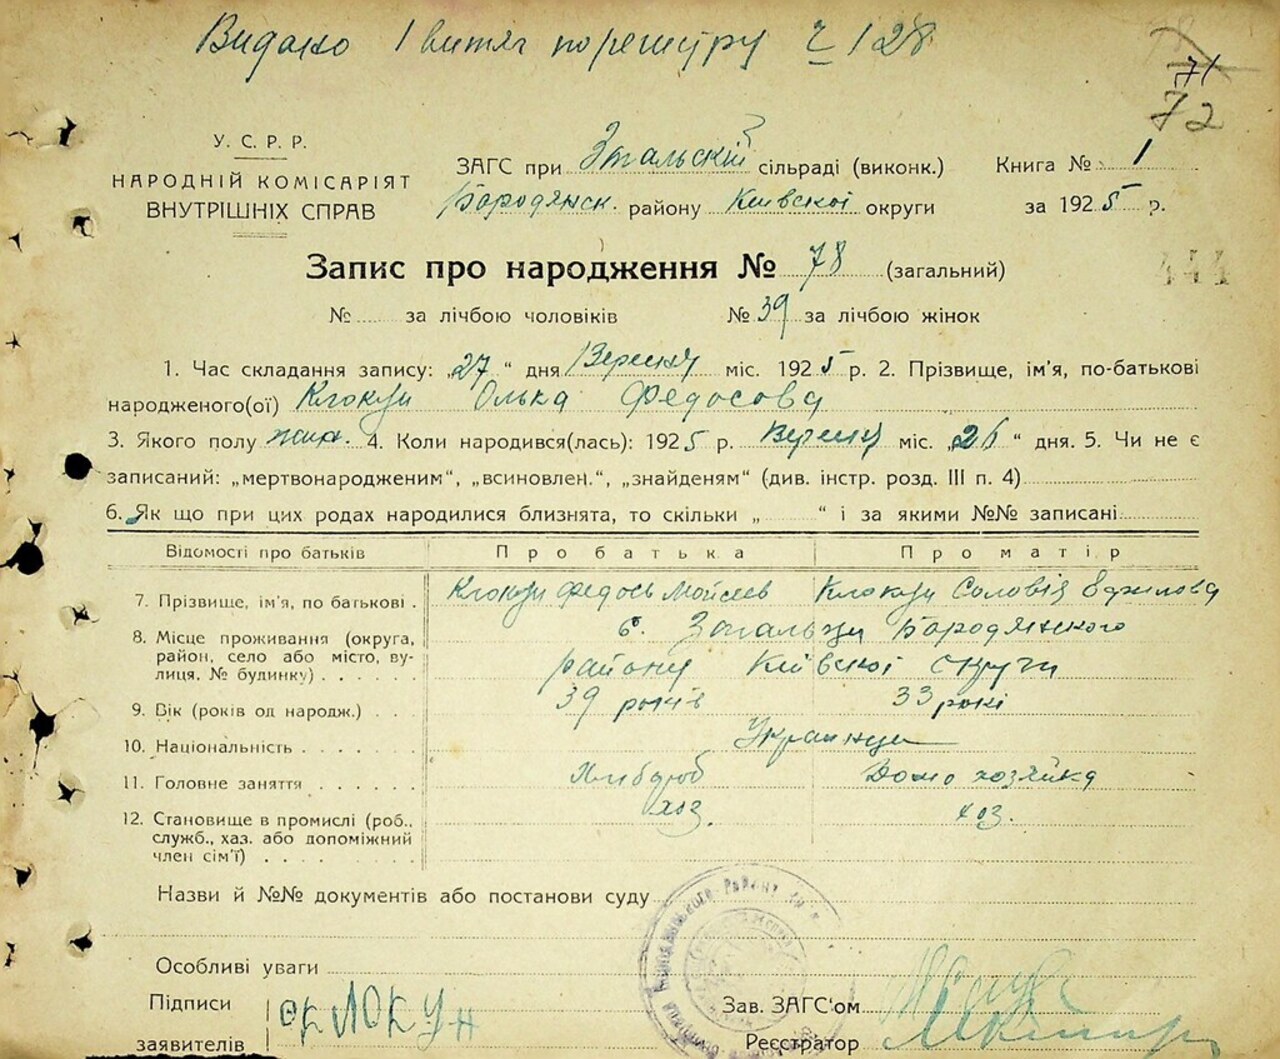 Видано 1 витяг по регистру ч 128
71
72
У. С. Р. Р.
НАРОДНІЙ КОМІСАРІЯТ
ВНУТРІШНІХ СПРАВ
ЗАГС при Загальскій сільраді (виконк.)
Бородянск. району Київскоі округи
Книга № 1
за 1925 р.
Запис про народження № 78 (загальний)
444
№ за лічбою чоловіків № 39 за лічбою жінок
1. Час складання запису: „27“ дня Вересня міс. 1925 р. 2. Прізвище, ім'я, по-батькові
народженого(ої) Клокун Олька Федосова
3. Якого полу жін. 4. Коли народився(лась): 1925 р. Вересня міс. „26“ дня. 5. Чи не є
записаний: „мертвонародженим“, „всиновлен.“, „знайденям“ (див. інстр. розд. III п. 4)
6. Як що при цих родах народилися близнята, то скільки „ “ і за якими №№ записані
Відомості про батьків Про батька Про матір
7. Прізвище, ім'я, по батькові . Клокун Федось Мойсеев Клокун Соловія
8. Місце проживання (округа, район, село або місто, вулиця, № будинку) с. Загальци Бородянского
району Київскоі округи
9. Вік (років од народж.) . . . 39 років 33 рокі
10. Національність . . . . . . . Украинци
11. Головне заняття . . . . . . Хлибороб Домо хозяйка
12. Становище в промислі (роб., служб., хаз. або допоміжний член сім'ї) . . . . . . . . хоз. хоз.
Назви й №№ документів або постанови суду
Особливі уваги
Підписи
заявителів
клокун
Зав. ЗАГС'ом
Реєстратор